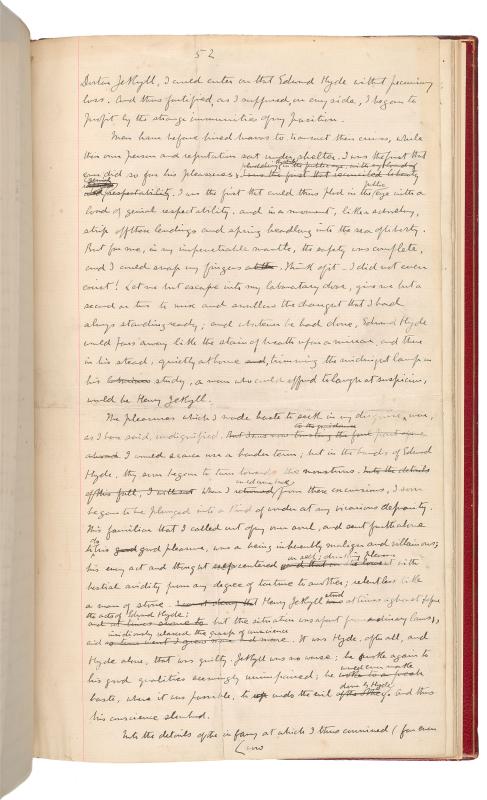 52
Doctor Jekyll, I could enter on that Edward Hyde without pecuniary
loss. And thus fortified, as I supposed, on every side, I began to
profit by the strange immunities of my position.
Men have before hired bravos to transact their crimes, while
their own person and reputation sat under shelter. I was the first that
ever did so for his pleasures. I was the first that
respectability. I was the first that could thus plod in the public eye with a
load of genial respectability, and in a moment, like a schoolboy,
strip off these lendings and spring headlong into the sea of liberty.
But for me, in my impenetrable mantle, the safety was complete,
and I could snap my fingers. Think of it – I did not even
exist! Let me but escape into my laboratory door, give me but a
second or two to mix and swallow the draught that I had
always standing ready; and whatever he had done, Edward Hyde
would pass away like the stain of breath upon a mirror, and there
in his stead, quietly at home and, trimming the midnight lamp in
his study, a man who could afford to laugh at suspicion,
would be Henry Jekyll.
The pleasures which I made haste to seek in my disguise, were,
as I have said, undignified.
I would scarce use a harder term; but in the hands of Edward
Hyde, they soon began to turn towards the monstrous. Into the details
of this fall, I will not When I returned would come back from these excursions, I soon
began to be plunged into a kind of wonder at my vicarious depravity.
This familiar that I called out of my own soul, and sent forth alone
to do his good pleasure, was a being inherently malign and villainous;
his every act and thought centered on self; drinking pleasure with
bestial avidity from any degree of torture to another; relentless like
a man of stone. Henry Jekyll stood at times aghast before
the acts of Edward Hyde;
but the situation was apart from ordinary laws,
and insidiously relaxed the grasp of conscience
It was Hyde, after all, and
Hyde alone, that was guilty. Jekyll was no worse; he woke again to
his good qualities seemingly unimpaired; he would even make
haste, where it was possible, to undo the evil done by Hyde. And thus
his conscience slumbered.
Into the details of the infamy at which I thus connived (for even
(now